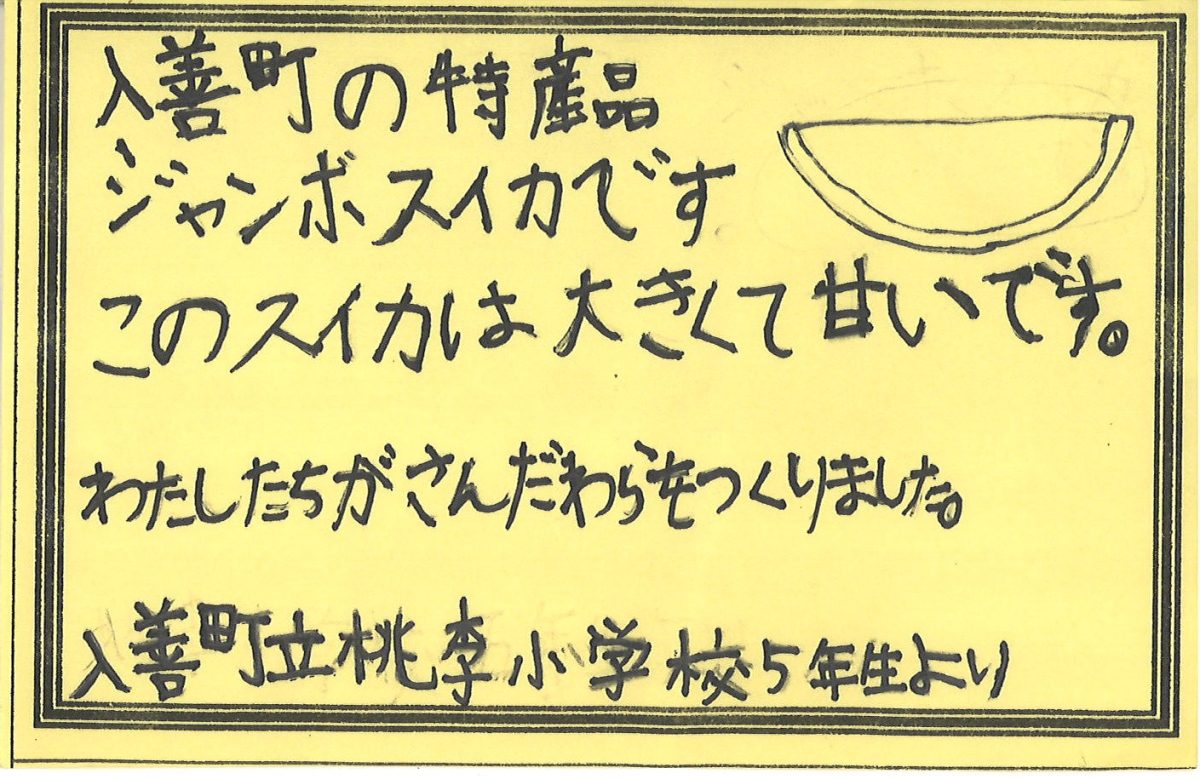 入善町の特産品
ジャンボスイカです
このスイカは大きくて甘いです。
わたしたちがさんだわらをつくりました。
入善町立桃李小学校5年生より